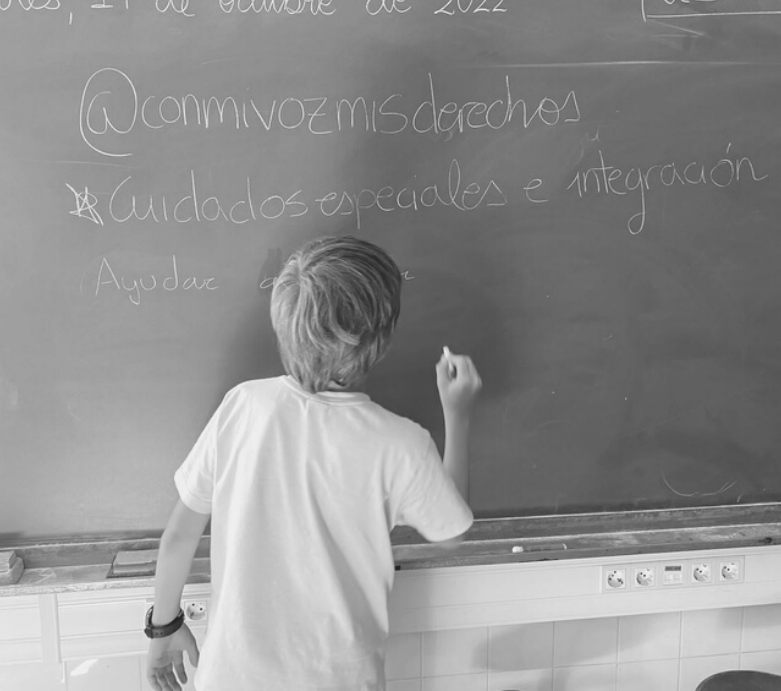 de octubre de 2022
@conmivozmisderechos
Cuidados especiales e integración
Ayudar a